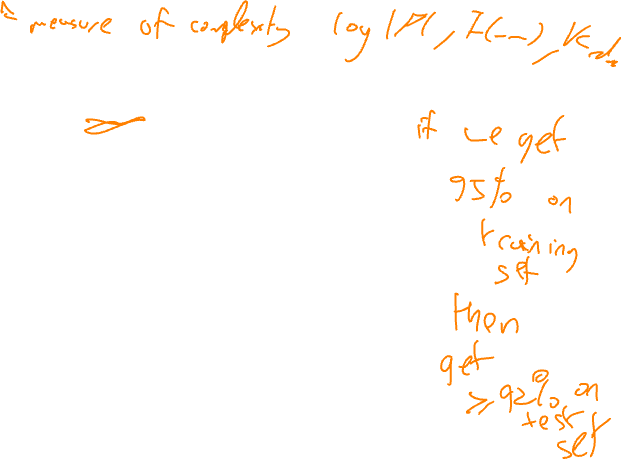 measure of complexity log |P|, I(--), VC d
if we get
95% on
training
set
then
get
≥ 92% on
test
set